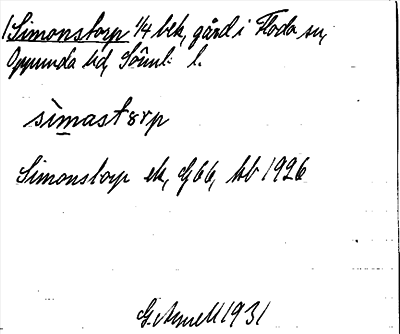 1 Simonstorp 1/4 bek, gård i Floda sn,
Oppunda hd, Södml. l.
sìmastɘrp
Simonstorp ek, G66, hb 1926
G. Arnell 1931